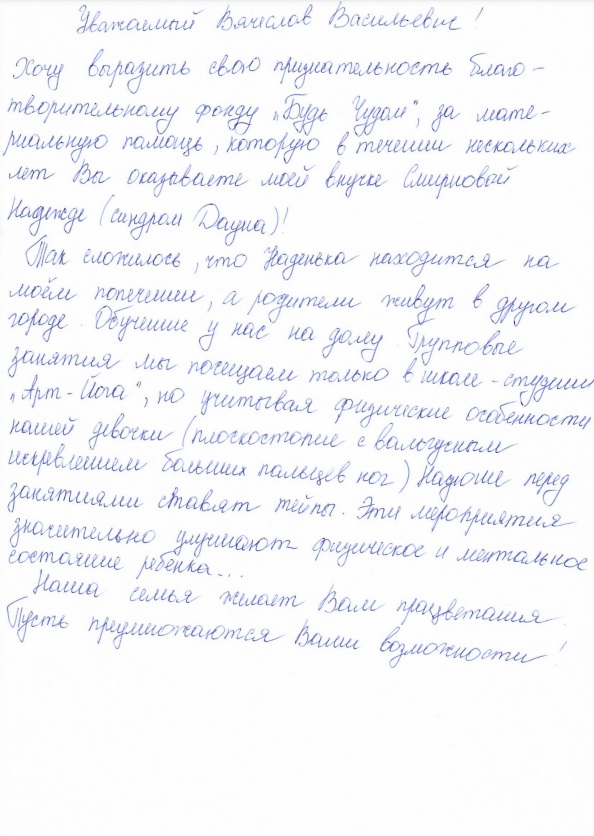 Уважаемый Вячеслав Васильевич!
Хочу выразить свою признательность благо-
творительному фонду „Будь Чудом", за мате-
риальную помощь, которую в течении нескольких
лет Вы оказываете моей внучке Смирновой
Надежде (синдром Дауна)!
Так сложилось, что Наденька находится на
моём попечении, а родители живут в другом
городе. Обучение у нас на дому. Групповые
занятия мы посещаем только в школе-студии
„Арт-Йога", но учитывая физические особенности
нашей девочки (плоскостопие с вальгусным
искревлением больших пальцев ног) Надюше перед
занятиями ставят тейпы. Эти мероприятия
значительно улучшают физическое и ментальное
состояние ребенка...
Наша семья желает Вам працветания.
Пусть преумножаются Ваши возможности!